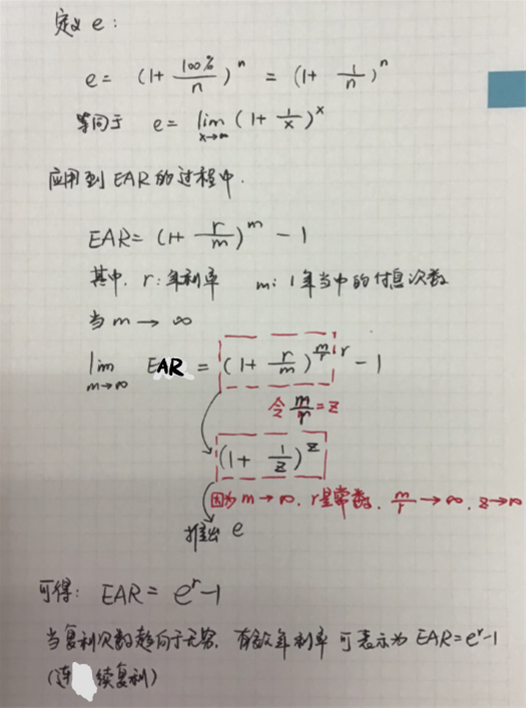 定义 e：
e = (1+ 100%/n)^n = (1+ 1/n)^n
等同于 e = lim x→∞ (1+ 1/x)^x
应用到 EAR 的过程中.
EAR = (1+ r/m)^m - 1
其中, r: 年利率 m: 1年当中的付息次数
当 m → ∞
lim m→∞ EAR = (1+ r/m)^(m/r · r) - 1
令 m/r = z
(1+ 1/z)^z
因为 m→∞, r是常数, m/r →∞, z→∞
推出 e
可得: EAR = e^r-1
当复利次数趋向于无穷, 有效年利率可表示为 EAR=e^r-1
(连续复利)